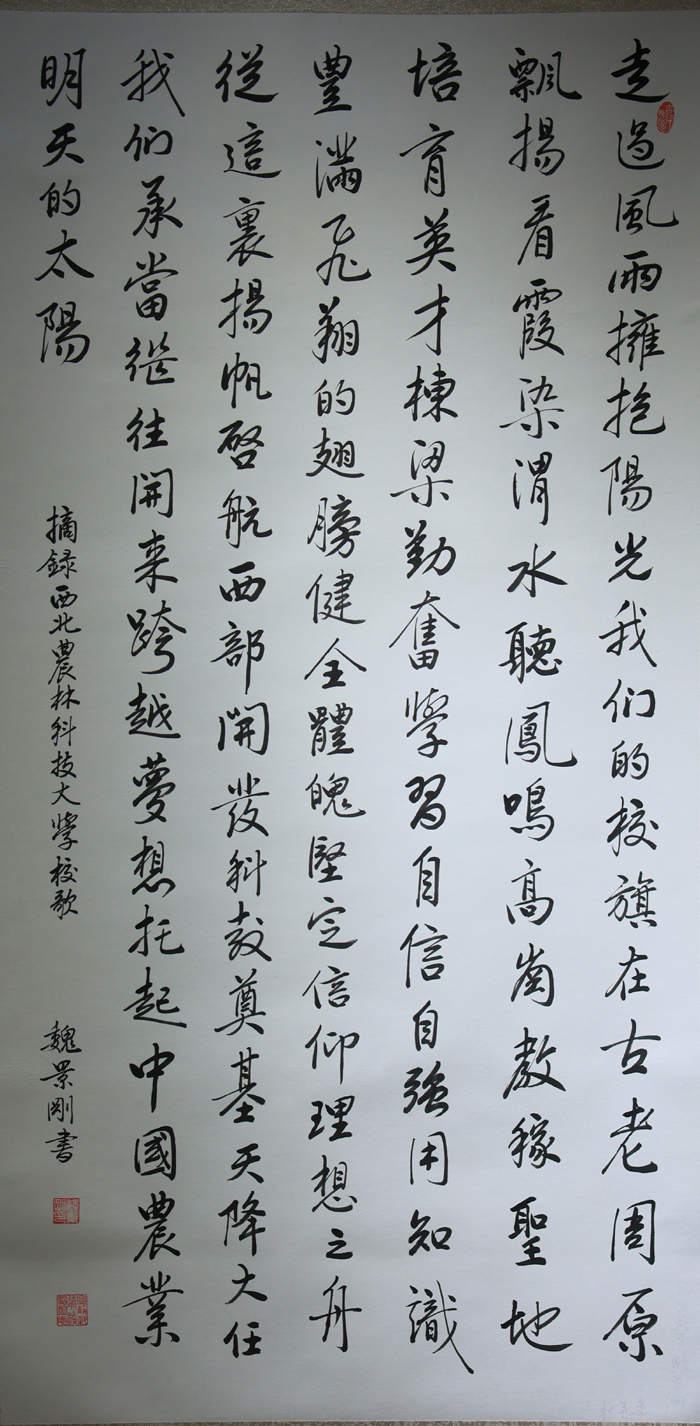 走過風雨擁抱陽光我们的校旗在古老周原
飄揚看霞染渭水聽鳳鳴高崗教稼聖地
培育英才棟梁勤奮學習自信自強用知識
豐滿飛翔的翅膀健全體魄堅定信仰理想之舟
從這裏揚帆啓航西部開發科教奠基天降大任
我们承當继往開来跨越夢想托起中國農業
明天的太陽
摘録西北農林科技大學校歌
魏景剛書